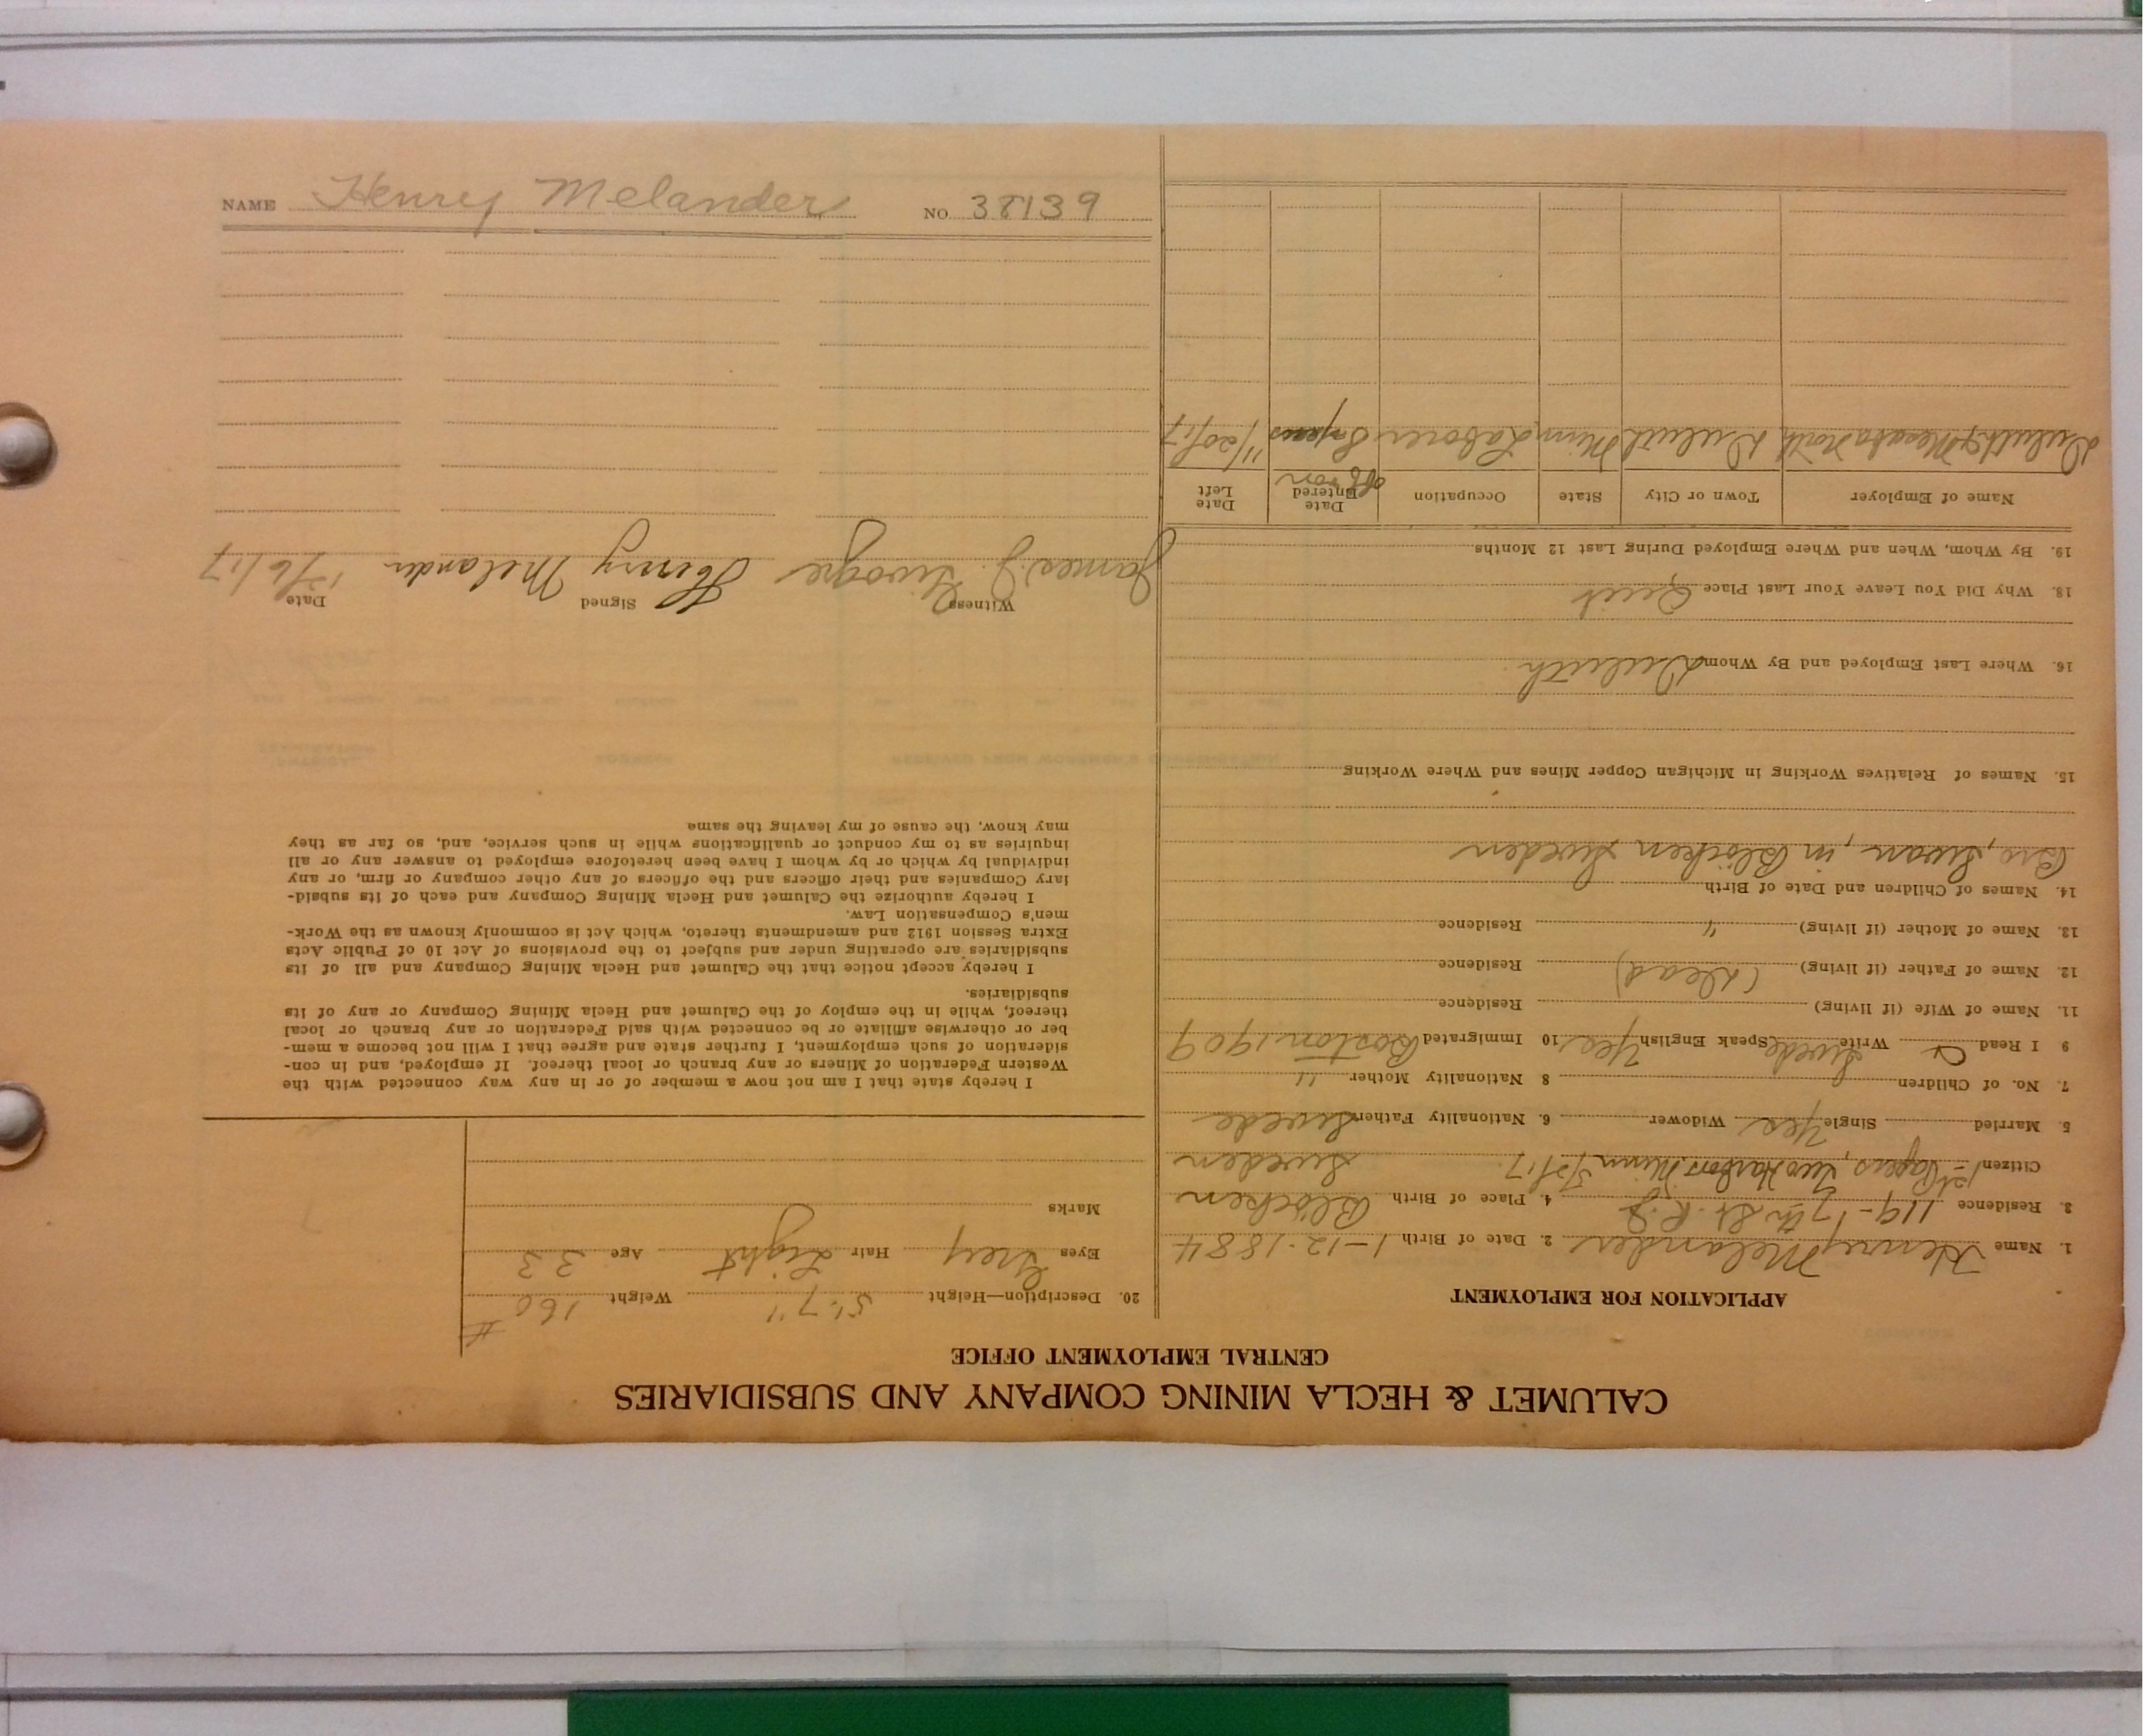 CALUMET & HECLA MINING COMPANY AND SUBSIDIARIES
CENTRAL EMPLOYMENT OFFICE
APPLICATION FOR EMPLOYMENT
1. Name Henry Melander 2. Date of Birth 1-12-1884
3. Residence 119-7th St. R.J. 4. Place of Birth Blöcken
Citizen 1st Papers, Two Harbors Minn 17. Sweden
5. Married Single Yes Widower 6. Nationality Father Swede
7. No. of Children 8 Nationality Mother "
9 I Read Write Swede Speak English Yes 10 Immigrated Boston 1909
11. Name of Wife (if living) Residence
12. Name of Father (if living) (Dead) Residence
13. Name of Mother (if living) " Residence
14. Names of Children and Date of Birth
Bro, Swan, in Blöcken Sweden
15. Names of Relatives Working in Michigan Copper Mines and Where Working
16. Where Last Employed and By Whom Duluth
18. Why Did You Leave Your Last Place Quit
19. By Whom, When and Where Employed During Last 12 Months
Name of Employer Town or City State Occupation Date Entered Date Left
off & on
Duluth & Mesaba North Duluth Minn Laborer 8 years 11/20/17
20. Description—Height 5'.7" Weight 160 #
Eyes Grey Hair Light Age 33
Marks
I hereby state that I am not now a member of or in any way connected with the
Western Federation of Miners or any branch or local thereof. If employed, and in con-
sideration of such employment, I further state and agree that I will not become a mem-
ber or otherwise affiliate or be connected with said Federation or any branch or local
thereof, while in the employ of the Calumet and Hecla Mining Company or any of its
subsidiaries.
I hereby accept notice that the Calumet and Hecla Mining Company and all of its
subsidiaries are operating under and subject to the provisions of Act 10 of Public Acts
Extra Session 1912 and amendments thereto, which Act is commonly known as the Work-
men's Compensation Law.
I hereby authorize the Calumet and Hecla Mining Company and each of its subsid-
iary Companies and their officers and the officers of any other company or firm, or any
individual by which or by whom I have been heretofore employed to answer any or all
inquiries as to my conduct or qualifications while in such service, and, so far as they
may know, the cause of my leaving the same.
Witness Signed Date
James J. Henry Melander 12/6/17
NAME Henry Melander NO. 38139